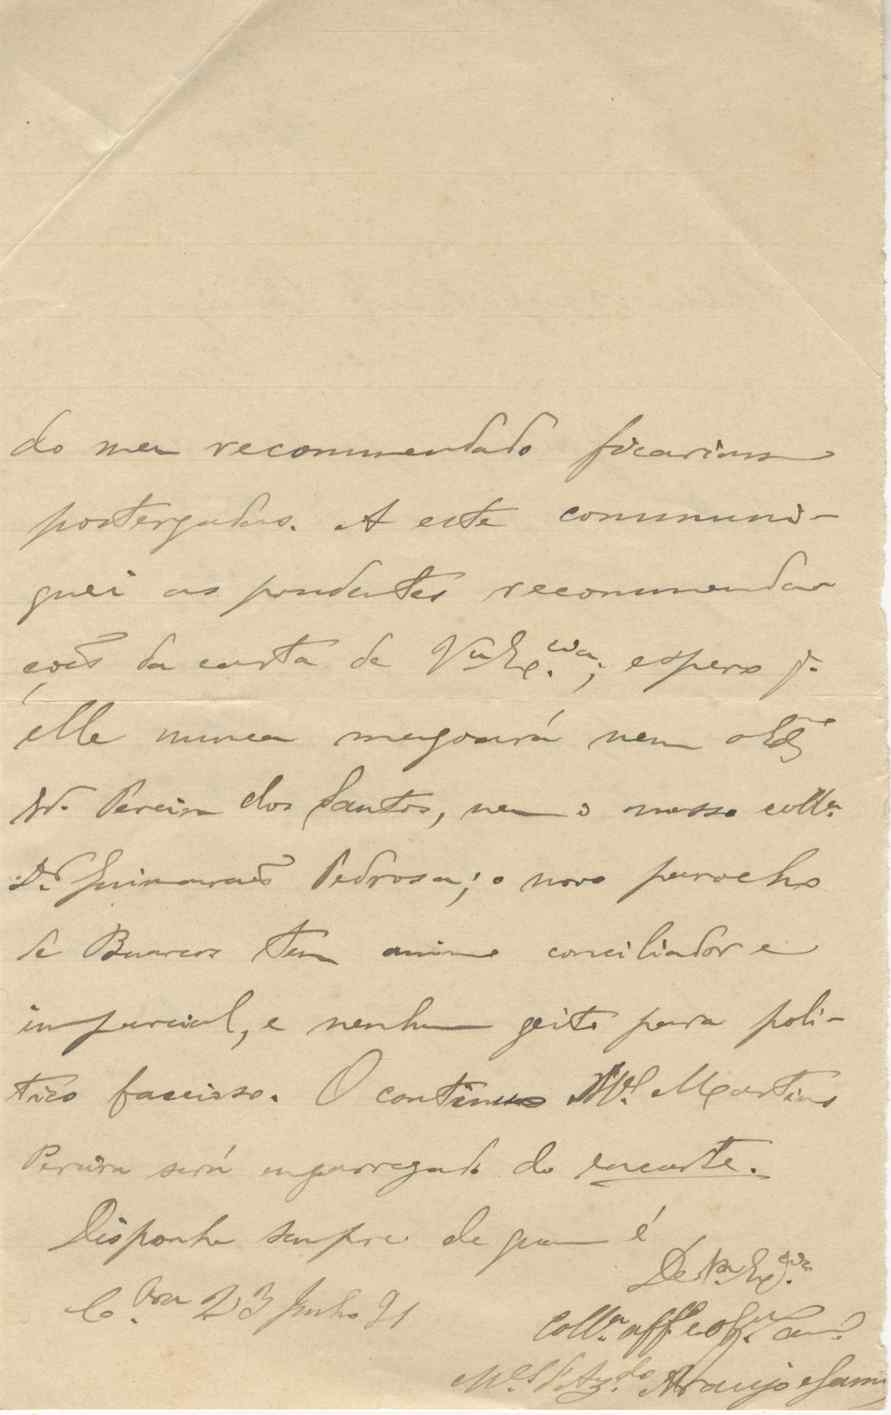 do meu recommendado ficariam
postergadas. A este communi-
quei as prudentes recommenda-
ções da carta de Vª Exᶜⁱᵃ; espero q.
elle nunca magoará nem o Exᵐᵒ
Sr. Pereira dos Santos, nem o nosso collª
Dr. Guimarães Pedrosa; o novo parocho
de Buarcos tem animo conciliador e
imparcial, e nenhum geito para poli-
tico faccioso. O continuo Mᵉˡ Martins
Pereira será encarregado do encarte.
Disponha sempre de quem é
De Vª Exᶜⁱᵃ
Cᵇʳᵃ 23 Junho 91
Collª affº e obrº
Mᵉˡ d'Azᵈᵒ Araujo e Gama